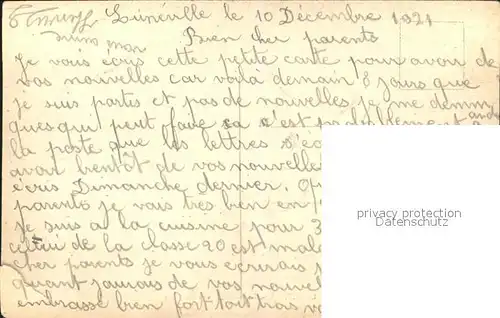 Lunéville le 10 Décembre 1921
Bien cher parents
Je vous ecris cette petite carte pour avoir de
vos nouvelles car voilà demain 8 jours que
je suis partis et pas de nouvelles je me demm
ques qui peut faire ca c'est probablement a
la poste que les lettres s'ec
avoir bientôt de vos nouvelle
écris Dimanche dernier.
parents je vais tres bien en
je suis a la cuisine pour 3
celui de la classe 20 est mala
cher parents je vous ecrirais
quant j'aurais de vos nouvel
embrasse bien fort tout trois vo
privacy protection
Datenschutz